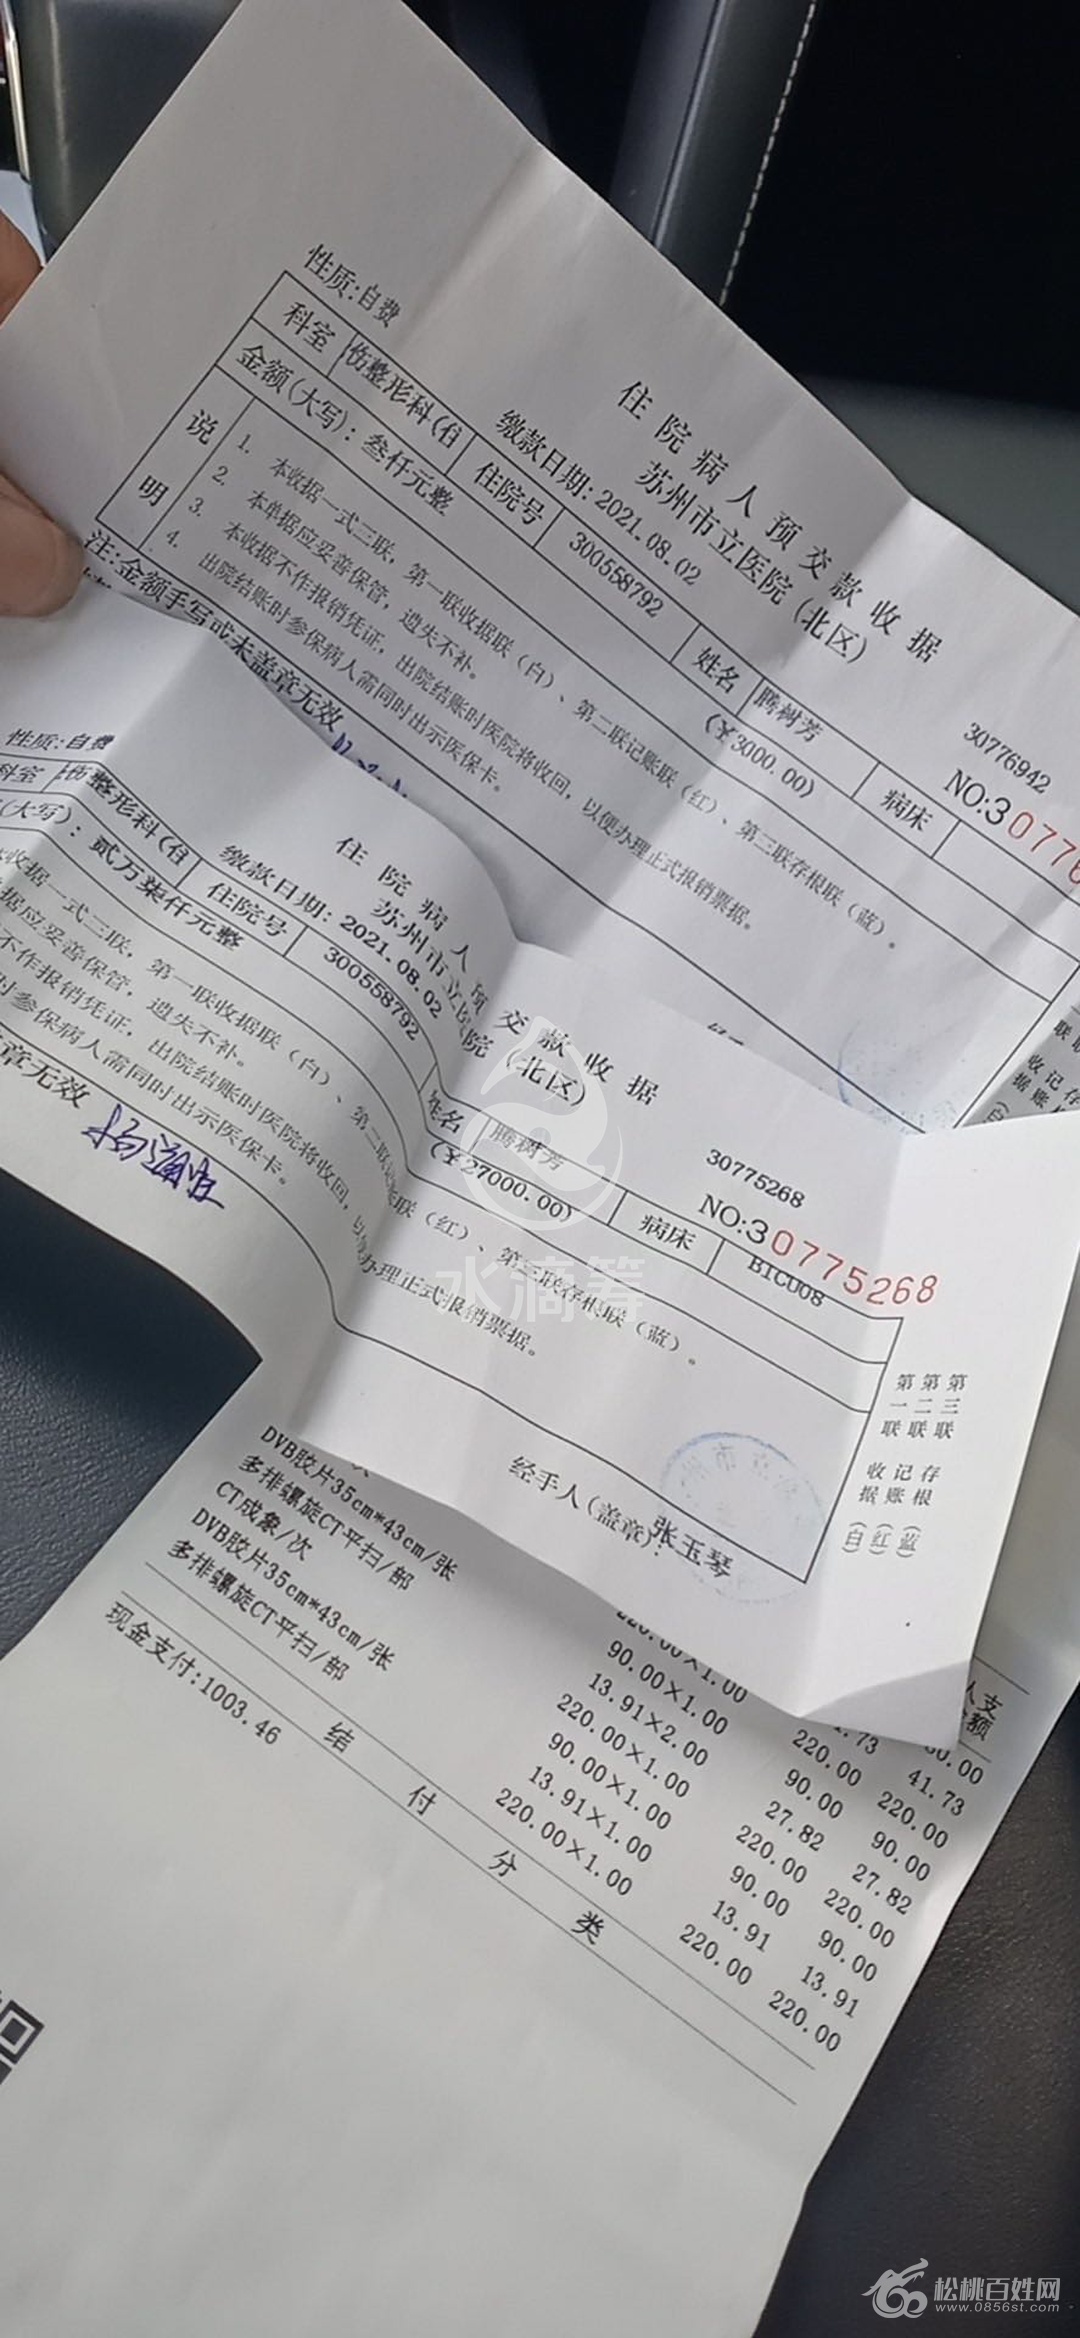 住院病人预交款收据
苏州市立医院(北区)
30776942
NO:30776
性质:自费
缴款日期:2021.08.02
科室 伤整形科(住 住院号 300558792 姓名 腾树芳 病床
金额(大写):叁仟元整 (¥3000.00)
说明
1. 本收据一式三联,第一联收据联(白)、第二联记账联(红)、第三联存根联(蓝)。
2. 本单据应妥善保管,遗失不补。
3. 本收据不作报销凭证,出院结账时医院将收回,以便办理正式报销票据。
4. 出院结账时参保病人需同时出示医保卡。
注:金额手写或未盖章无效
住院病人预交款收据
苏州市立医院(北区)
30775268
NO:30775268
性质:自费
缴款日期:2021.08.02
科室 伤整形科(住 住院号 300558792 姓名 腾树芳 病床 BICU08
(大写):贰万柒仟元整 (¥27000.00)
收据一式三联,第一联收据联(白)、第二联记账联(红)、第三联存根联(蓝)。
据应妥善保管,遗失不补。
不作报销凭证,出院结账时医院将收回,以便办理正式报销票据。
时参保病人需同时出示医保卡。
章无效
经手人(盖章):张玉琴
第一联 收据(白)
第二联 记账(红)
第三联 存根(蓝)
水滴筹
60.00
41.73
220.00×1.00 220.00 220.00
90.00×1.00 90.00 90.00
DVB胶片35cm*43cm/张 13.91×2.00 27.82 27.82
多排螺旋CT平扫/部 220.00×1.00 220.00 220.00
CT成象/次 90.00×1.00 90.00 90.00
DVB胶片35cm*43cm/张 13.91×1.00 13.91 13.91
多排螺旋CT平扫/部 220.00×1.00 220.00 220.00
结付分类
现金支付:1003.46
松桃百姓网
www.0856st.com